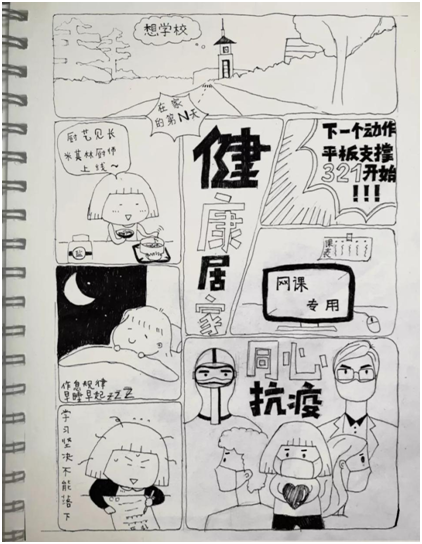 想学校
在家
的第N天
厨艺见长
米其林厨师
上线~
健
康
居
家
下一个动作
平板支撑
321开始
!!!
课表
网课
专用
作息规律
早睡早起zzZ
同心
抗疫
学习坚决不能落下